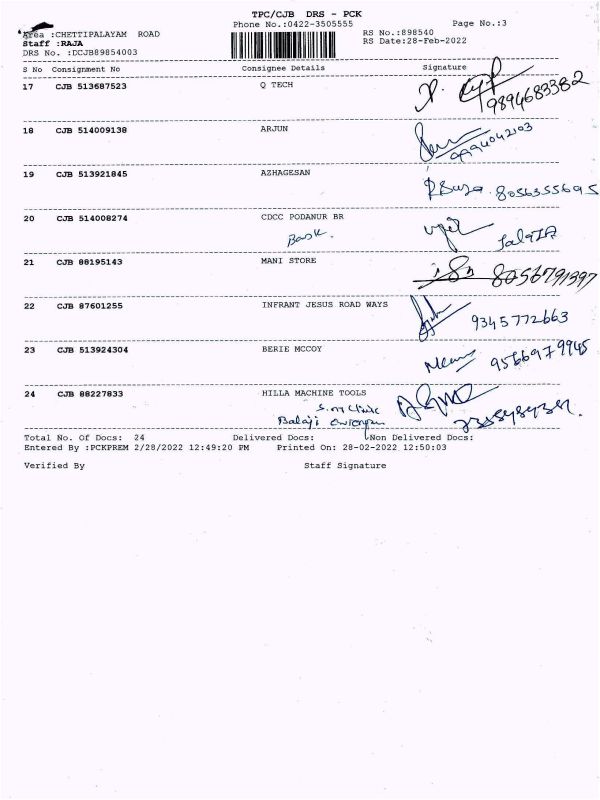 TPC/CJB DRS - PCK
Phone No.:0422-3505555 Page No.:3
Area :CHETTIPALAYAM ROAD RS No.:898540
Staff :RAJA RS Date:28-Feb-2022
DRS No. :DCJB89854003
S No Consignment No Consignee Details Signature
17 CJB 513687523 Q TECH
9894683382
18 CJB 514009138 ARJUN
9994042103
19 CJB 513921845 AZHAGESAN
8056355695
20 CJB 514008274 CDCC PODANUR BR
21 CJB 88195143 MANI STORE
8056791397
22 CJB 87601255 INFRANT JESUS ROAD WAYS
9345772663
23 CJB 513924304 BERIE MCCOY
9566979945
24 CJB 88227833 HILLA MACHINE TOOLS
Balaji
Total No. Of Docs: 24 Delivered Docs: Non Delivered Docs:
Entered By :PCKPREM 2/28/2022 12:49:20 PM Printed On: 28-02-2022 12:50:03
Verified By Staff Signature